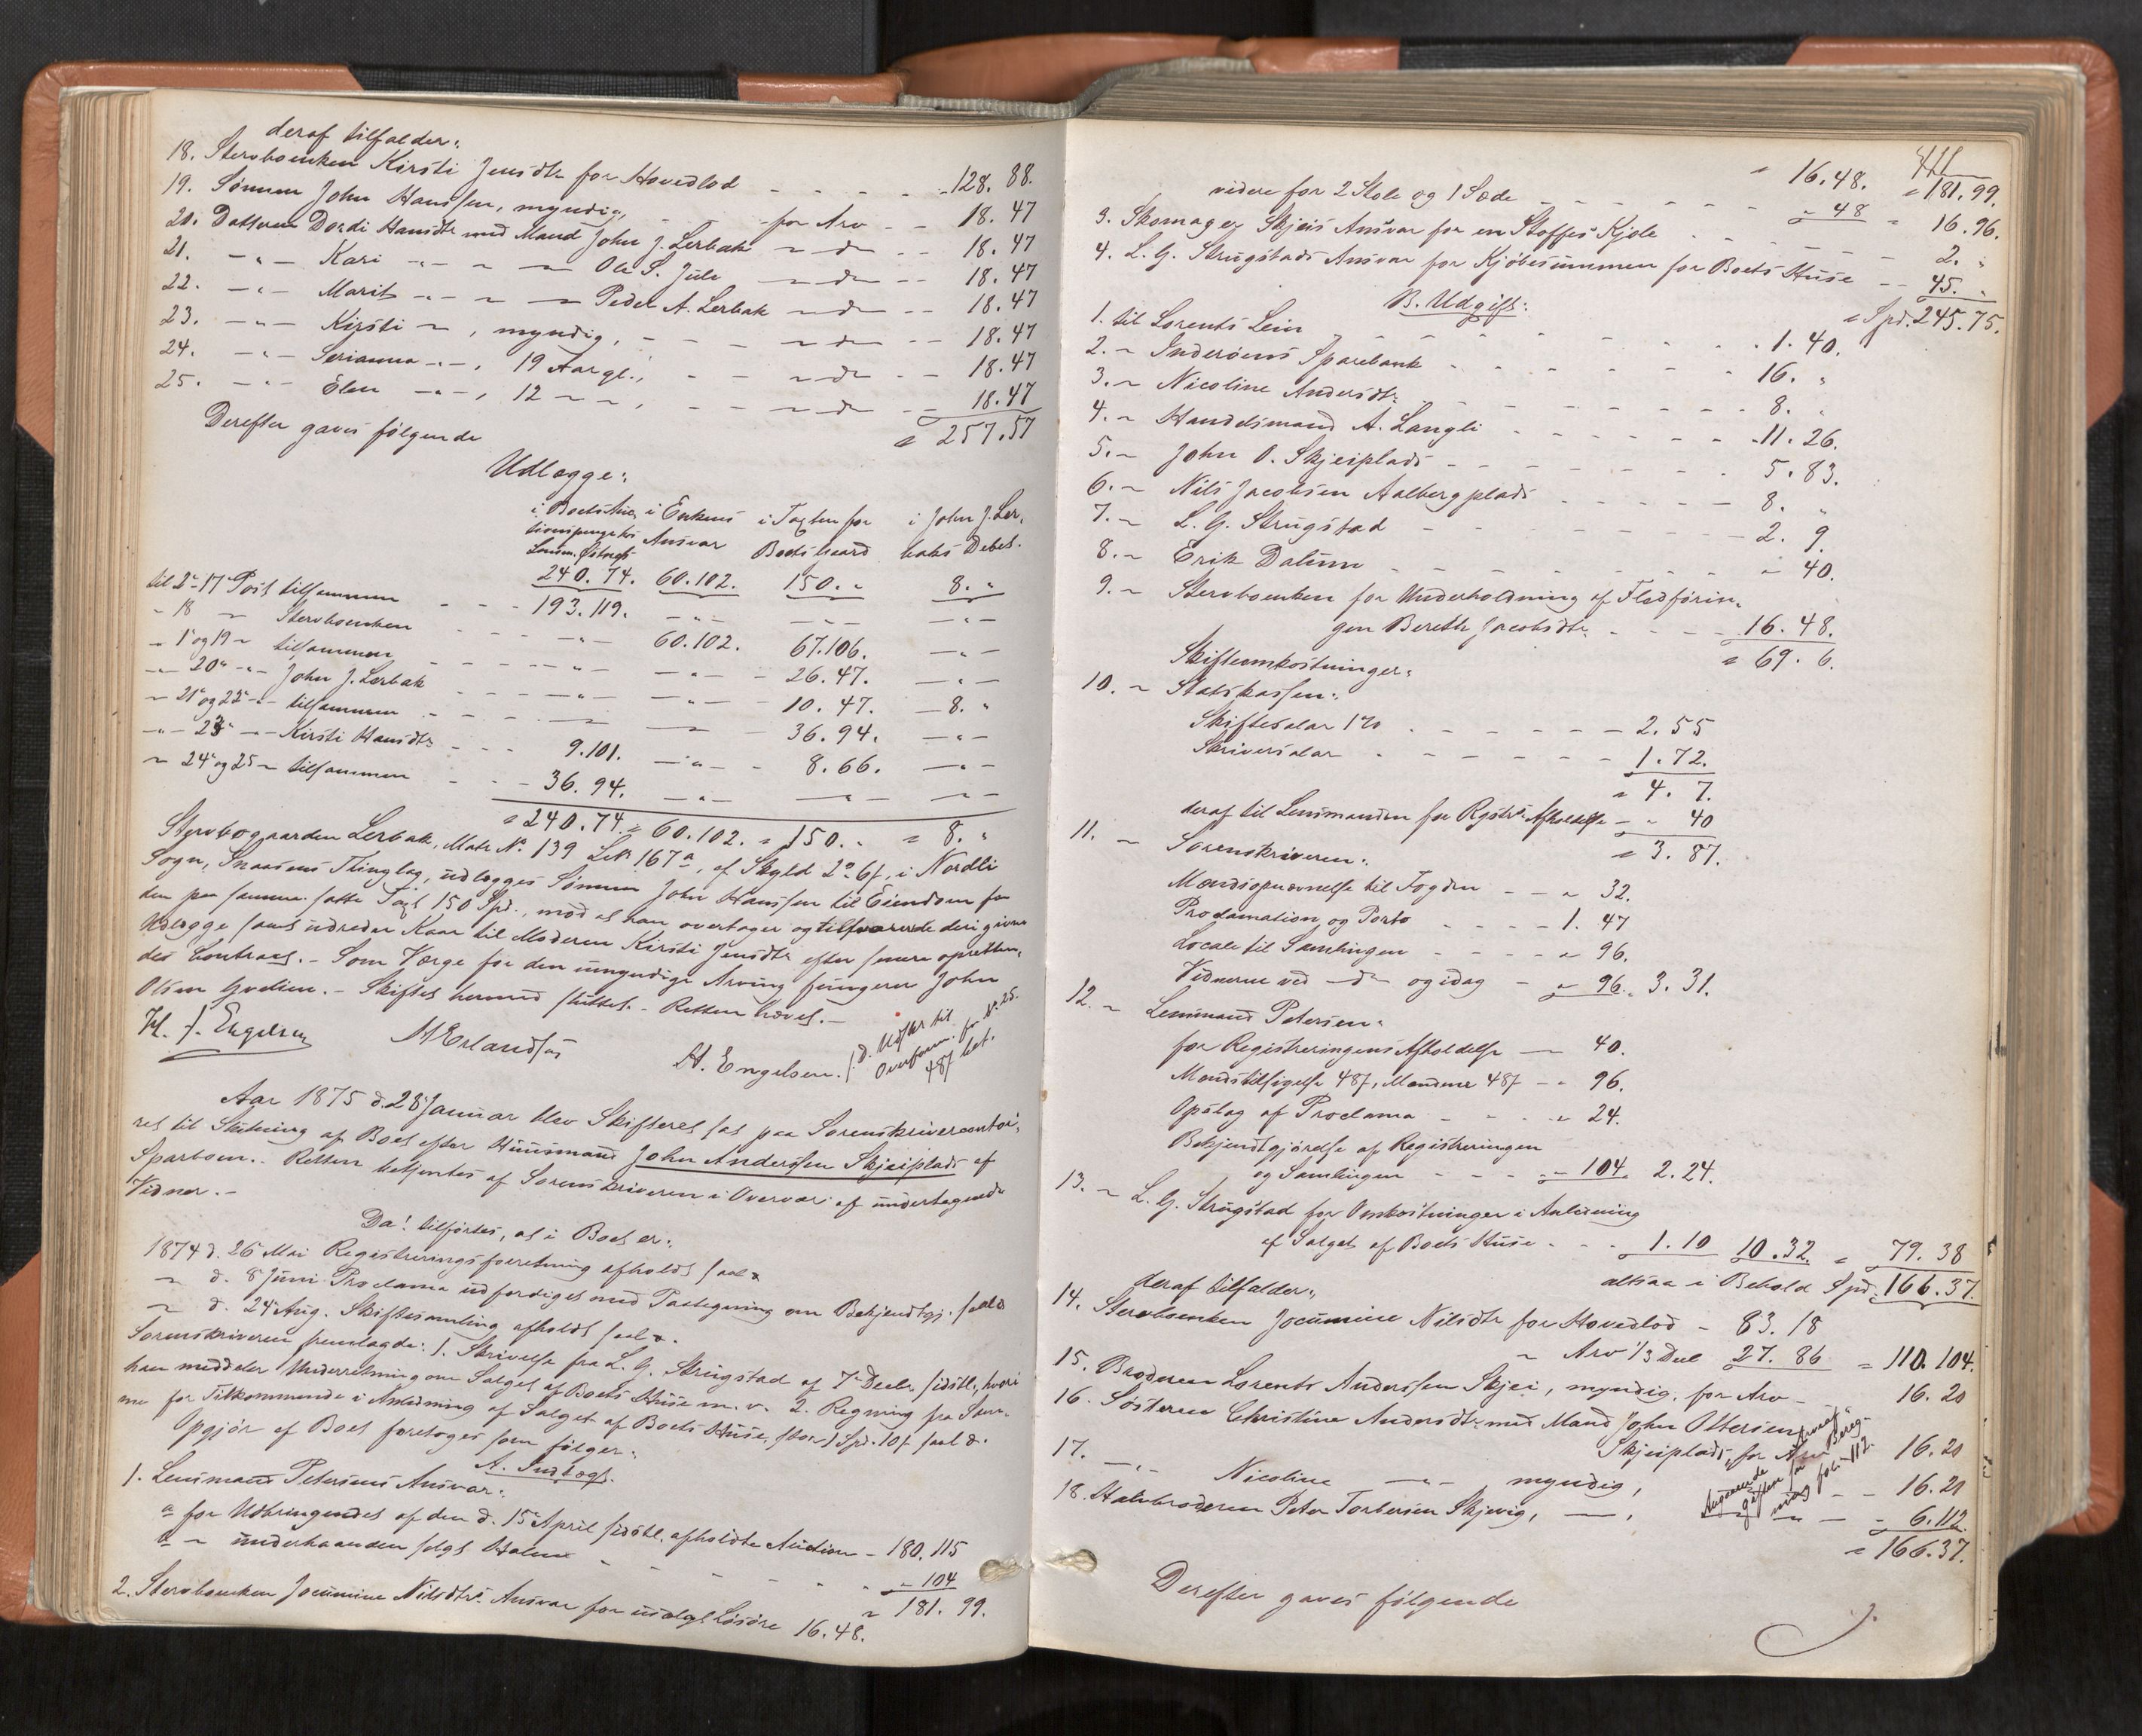 deraf tilfalder:
18. Stervboenken Kirsti Jensdtr for Hovedlod - - - - 128. 88.
19. Sønnen John Hanssen, myndig, - - for Arv - - 18. 47
20. Datteren Dordi Hansdtr med Mand John J. Lerbak " do - - 18. 47
21. - " - Kari - " - " - Ole S. Jule - do - - 18. 47
22. - " - Marit - " - " - Peder A. Lerbak - do - - 18. 47
23. - " - Kirsti " , myndig, - - - do - - 18. 47
24. - " - Serianna - " - , 19 Aar gl., - - do - - 18. 47
25. - " - Elen - " - , 12 " " , - - do - - 18. 47
" 257. 57
Derefter gaves følgende
Udlægge:
i Boets Auc- i Enkens i Taxten for i John J. Ler-
tionspenge hos Ansvar Boets Gaard baks Debet.
Lensm.
til 2-17 Post tilsammen - - 240. 74. 60. 102. 150. " 8. "
" 18 " Stervboenken - - 193. 119. - " - - " - - " -
" 1 og 19 " tilsammen - - - " - 60. 102. 67. 106. - " -
- " 20 - " - John J. Lerbak - - - " - - " - 26. 47. - " -
" 21 og 22 - " - tilsammen - - - " - - " - 10. 47. - 8. "
- " 23 - " - Kirsti Hansdtr - - 36. 94. - " -
" 24 og 25 " tilsammen - - 9. 101. - " - 8. 66. - " -
- 36. 94. - " - - " - - " -
" 240. 74. " 60. 102. " 150. " " 8. "
Stervbogaarden Lerbak, Matr No 139 Lbn 167a, af Skyld 2 " 6 f, i Nordli
Sogn, Snaasens Thinglag, udlægges Sønnen John Hanssen til Eiendom for
den paa samme satte Taxt 150 Spd., mod at han overtager og tilsvarende deri givne
Udlægge samt udreder Kaar til Moderen Kirsti Jensdtr efter senere opretten-
des Contract. - Som Værge for den umyndige Arving fungerer John
Olsen Gvelien. - Skiftet hermed sluttet. - Retten hævet. -
H. J. Engelsen M Erlandsen H. Engelsen.
/: d. Udskr. til
Overform. for No 25.
48 f bet.
Aar 1875 d. 28 Januar blev Skifteret sat paa Sorenskrivercontoi-
ret til Slutning af Boet efter Huusmand John Anderssen Skjeiplads af
Sparboen. - Retten betjentes af Sorenskriveren i Overvær af undertegnede
Vidner. -
Da! tilførtes, at i Boet er:
1874 d. 26 Mai Registreringsforretning afholdt saal.
" d. 8 Juni Proclama udfærdiget med Paategning om Bekjendtgj. saal.
" d. 24 Aug. Skiftesamling afholdt saal.
Sorenskriveren fremlagde: 1. Skrivelse fra L. G. Strugstad af 7 Decbr. sidstl., hvori
han meddeler Underretning om Salget af Boets Huse m. v. 2. Regning fra Sam-
me for Tilkommende i Anledning af Salget af Boets Huse, stor 1 Spd. 10 f saal.
Opgjør af Boet foretoges som følger:
A. Indtægt.
1. Lensmand Petersens Ansvar:
a for Udbringendet af den d. 15 April sidstl. afholdte Auction - 180. 115
b " underhaanden solgt Halm - - - - " 104
" 181. 99.
2. Stervboenken Jocumine Nilsdtrs Ansvar for udlagt Løsøre 16. 48.
411
" 16. 48. " 181. 99.
videre for 2 Stole og 1 Sæde - - - " 48 " 16. 96.
3. Skomager Skjeis Ansvar for en Stoffes Kjole - - - 2. "
4. L. G. Strugstads Ansvar for Kjøbesummen for Boets Huse - - 45. "
" Spd. 245. 75.
B. Udgift:
1. til Lorents Lein - - - - 1. 40.
2. " Inderøens Sparebank - - - - 16. "
3. " Nicoline Andersdtr - - - - 8. "
4. " Handelsmand A. Langli - - - - 11. 26.
5. " John O. Skjeiplads - - - - 5. 83.
6. " Nils Jacobsen Aalbergplads - - - - 8. "
7. " L. G. Strugstad - - - - 2. 9.
8. " Erik Dalum - - - - " 40.
9. " Stervboenken for Underholdning af Fledførin-
gen Berethe Jacobsdtr - - - 16. 48.
" 69. 6.
Skifteomkostninger:
10. " Statskassen:
Skiftesalar 1% - - - - 2. 55
Skriversalar - - - - 1. 72.
" 4. 7.
deraf til Lensmanden for Regstrs. Afholdelse - " 40
" 3. 87.
11. " Sorenskriveren:
Mændsopnævnelse til Fogden - - " 32.
Proclamation og Porto - - - 1. 47
Locale til Samlingen - - - " 96.
Vidnerne ved - do - og idag - " 96. 3. 31.
12. " Lensmand Petersen:
for Registreringens Afholdelse - 40.
Mændstilsigelse 48 f, Mændene 48 f - " 96.
Opslag af Proclama - - - " 24.
Bekjendtgjørelse af Registreringen
og Samlingen - - - " 104. 2. 24.
13. " L. G. Strugstad for Omkostninger i Anledning
af Salget af Boets Huse - - - 1. 10 10. 32. " 79. 38
altsaa i Behold Spd. 166. 37.
deraf tilfalder:
14. Stervboenken Jocumine Nilsdtr for Hovedlod - 83. 18
" Arv 1/3 Deel 27. 86 " 110. 104.
15. Broderen Lorents Anderssen Skjei, myndig, for Arv - 16. 20
16. Søsteren Christine Andersdtr med Mand John Ottersen
Skjeiplads, for Arv 16. 20
17. - " - Nicoline - " - myndig, - - 16. 20
18. Halvbroderen Peter Torbersen Skjevig, - " - , - - " 6. 112
" 166. 37.
Derefter gaves følgende